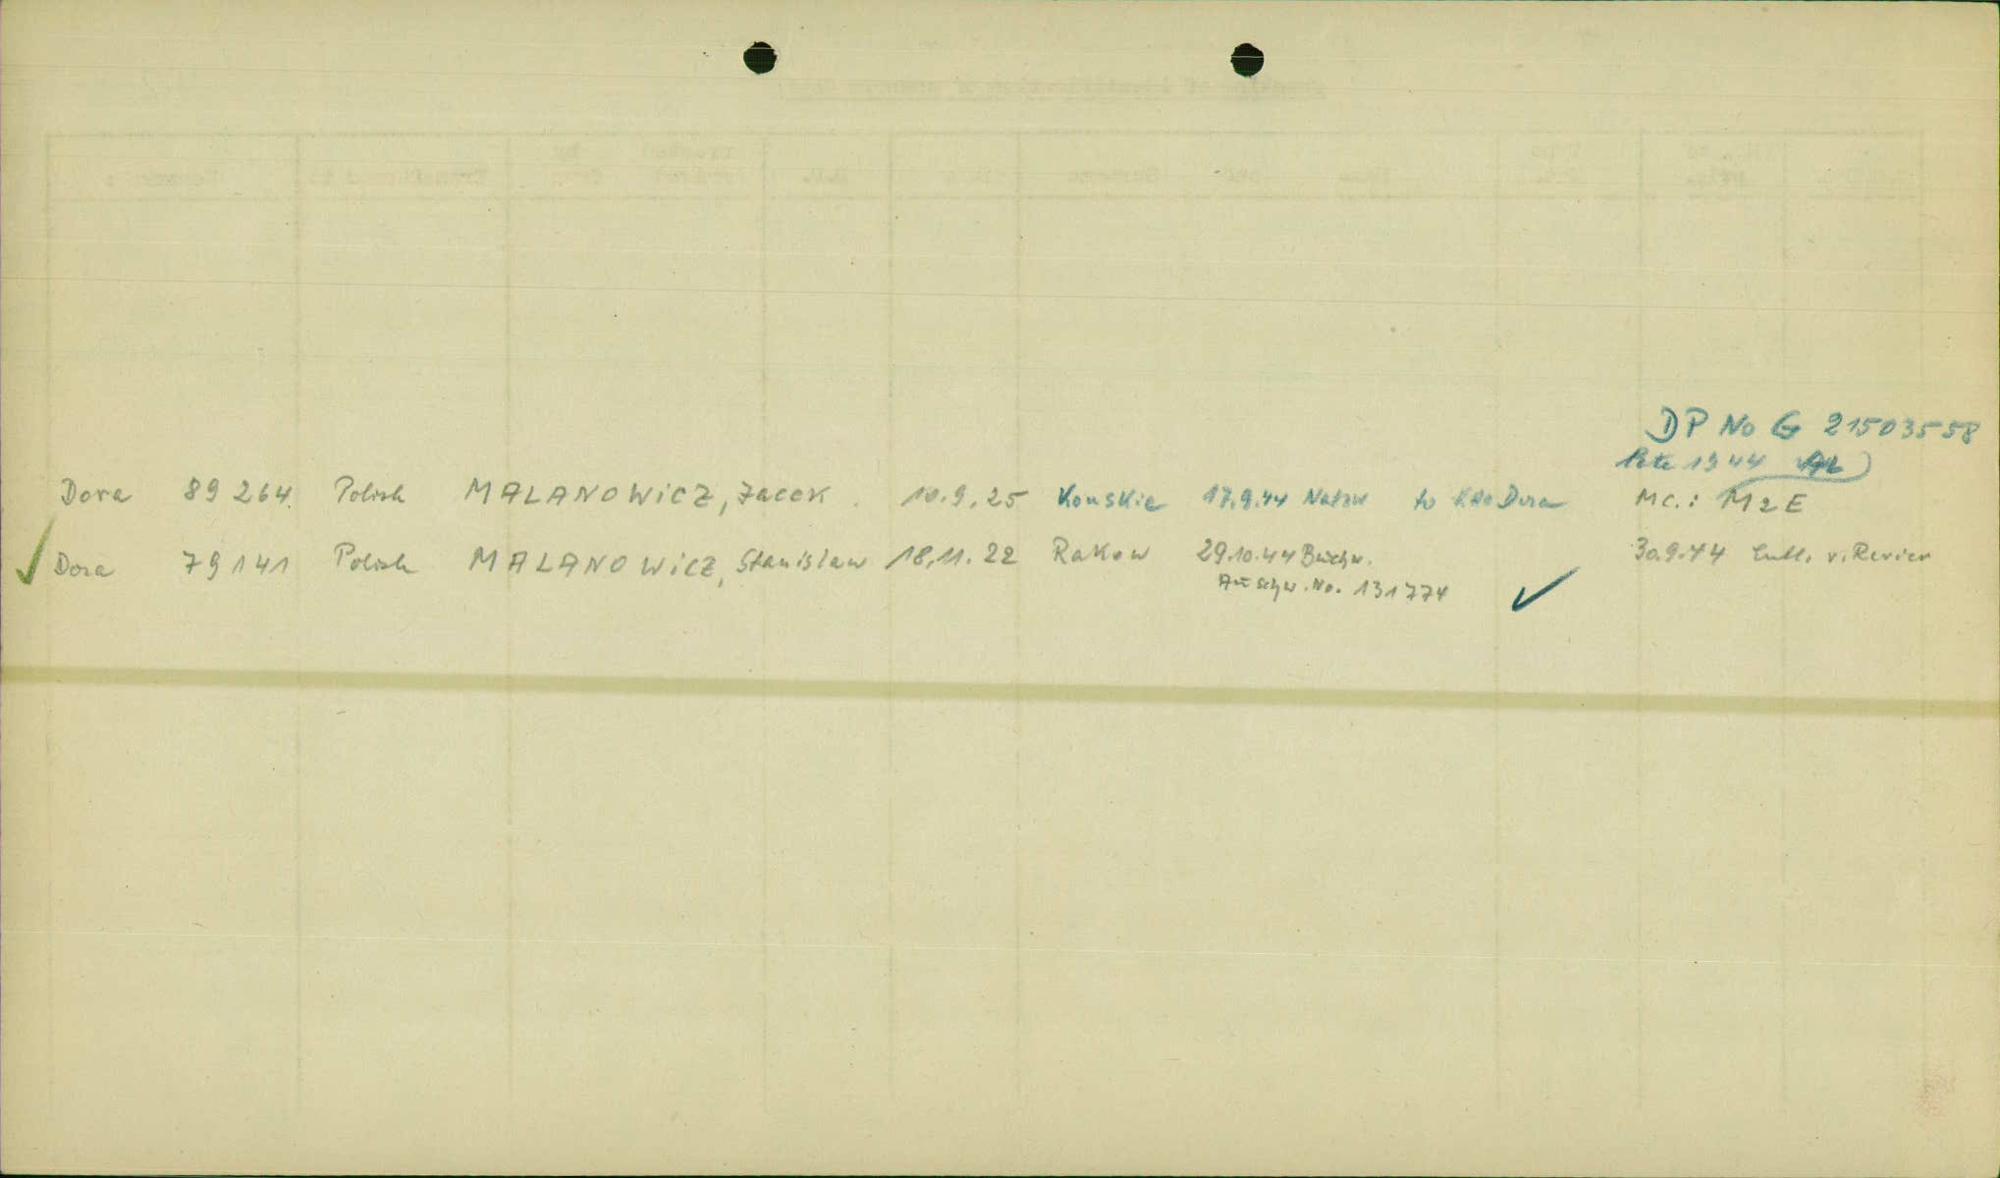 DP No G 21503558
1944
Dora 89 264 Polish MALANOWICZ, Jacek 10.9.25 Konskie 17.9.44 Natzw to Kdo Dora MC.: M2E
Dora 79141 Polish MALANOWICZ, Stanislaw 18.11.22 Rakow 29.10.44 Buchw. 30.9.44 Entl. v. Revier
Auschw. No. 131774